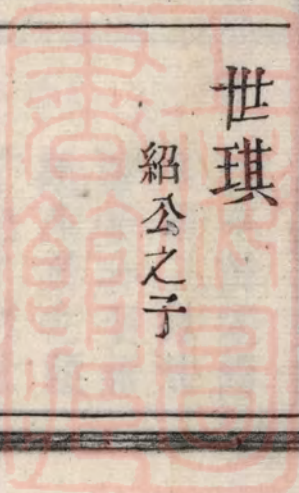 世琪
紹公之子